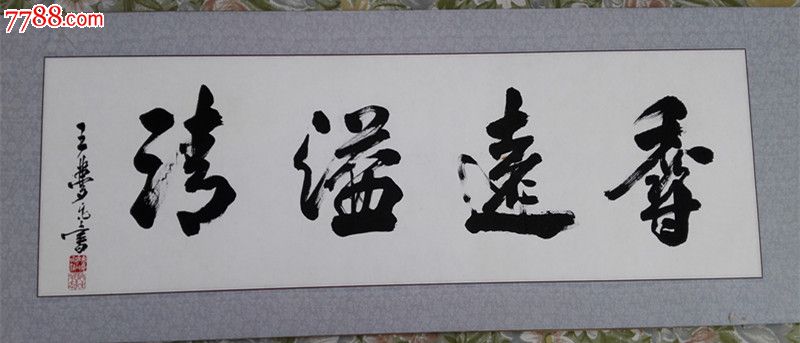 7788.com
香遠溢清
王夢 書